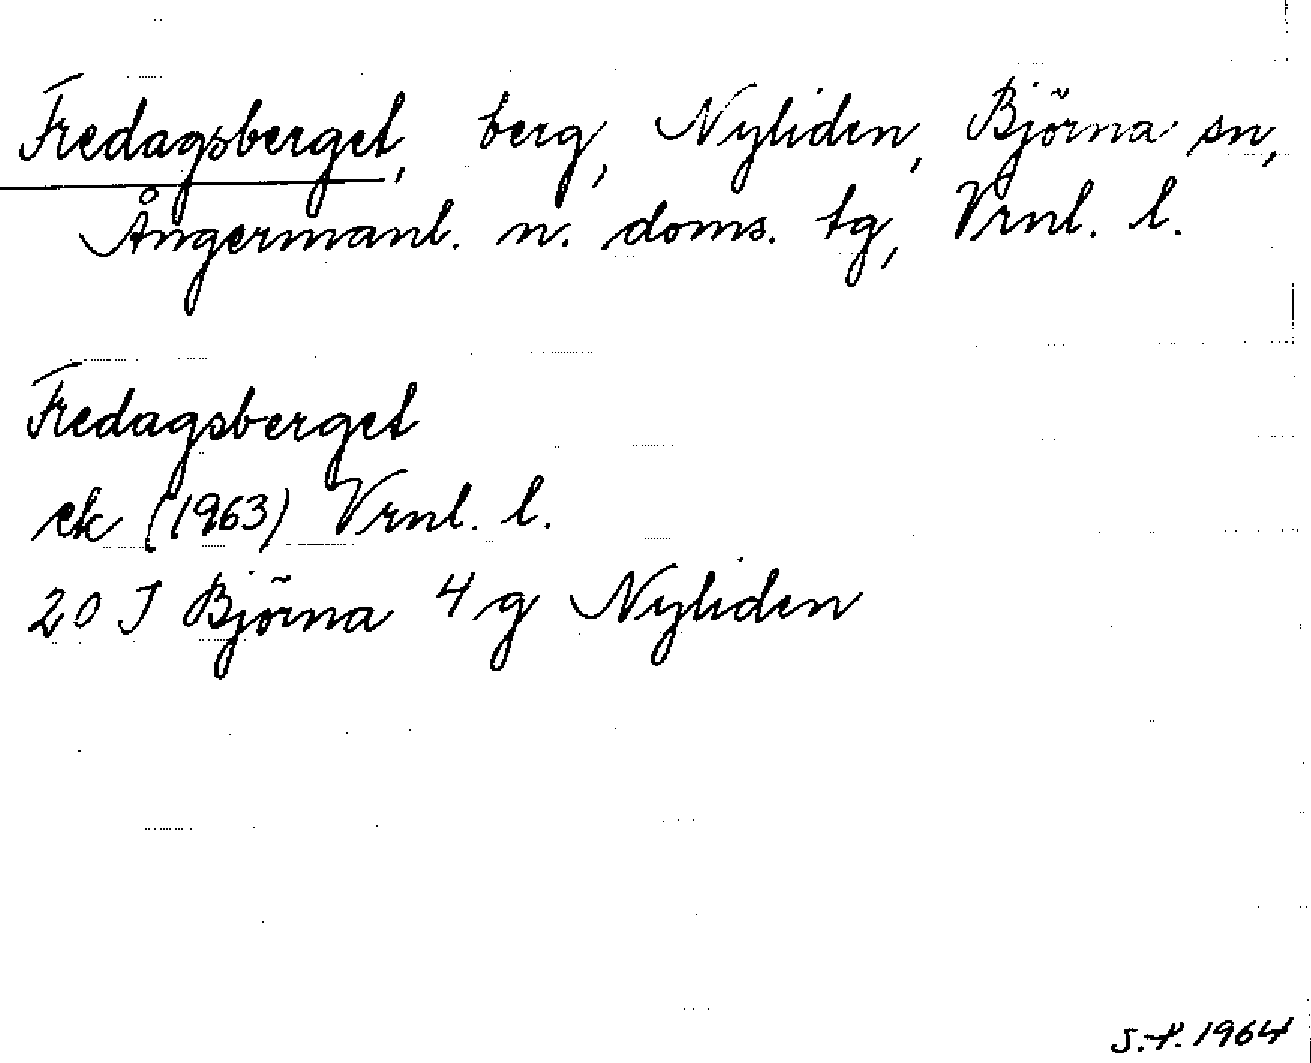 Fredagsberget, berg, Nyliden, Björna sn,
Ångermanl. n. doms. tg, Vrnl. l.
Fredagsberget
ek (1963) Vrnl. l.
20 J Björna 4 g Nyliden
1964